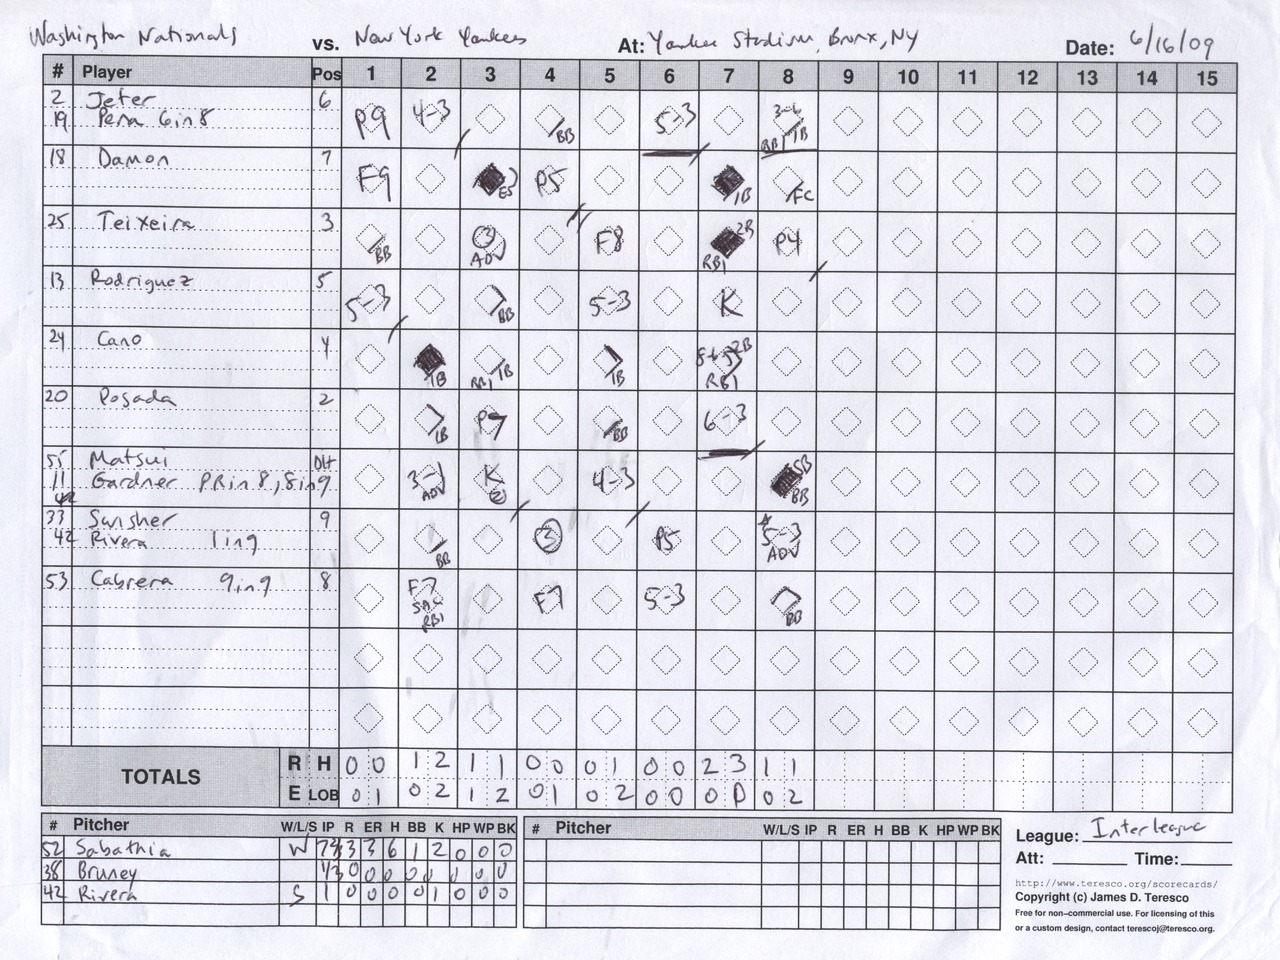 Washington Nationals vs. New York Yankees At: Yankee Stadium, Bronx, NY Date: 6/16/09
# Player Pos 1 2 3 4 5 6 7 8 9 10 11 12 13 14 15
2 Jeter 6
19 Pena 6in8
P9 4-3 BB 5-3 3-6 RBI 1B
18 Damon 7
F9 E5 P5 1B FC
25 Teixeira 3
BB 3 ADV F8 2B RBI P4
13 Rodriguez 5
5-3 BB 5-3 K
24 Cano 4
1B RBI 1B 1B 2B RBI
20 Posada 2
1B P7 BB 6-3
55 Matsui DH
11 Gardner PRin8, 8in9
42
3-1 ADV K 2 4-3 SB BB
33 Swisher 9
42 Rivera 1in9
BB 3 P5 5-3 ADV
53 Cabrera 9in9 8
F7 SAC RBI F7 5-3 BB
TOTALS
R H 0 0 1 2 1 1 0 0 0 1 0 0 2 3 1 1
E LOB 0 1 0 2 1 2 0 1 0 2 0 0 0 0 0 2
# Pitcher W/L/S IP R ER H BB K HP WP BK # Pitcher W/L/S IP R ER H BB K HP WP BK
52 Sabathia W 7 2/3 3 3 6 1 2 0 0 0
38 Bruney 1/3 0 0 0 0 0 0 0 0
42 Rivera S 1 0 0 0 0 1 0 0 0
League: Interleague
Att: Time:
http://www.teresco.org/scorecards/
Copyright (c) James D. Teresco
Free for non-commercial use. For licensing of this
or a custom design, contact terescoj@teresco.org.